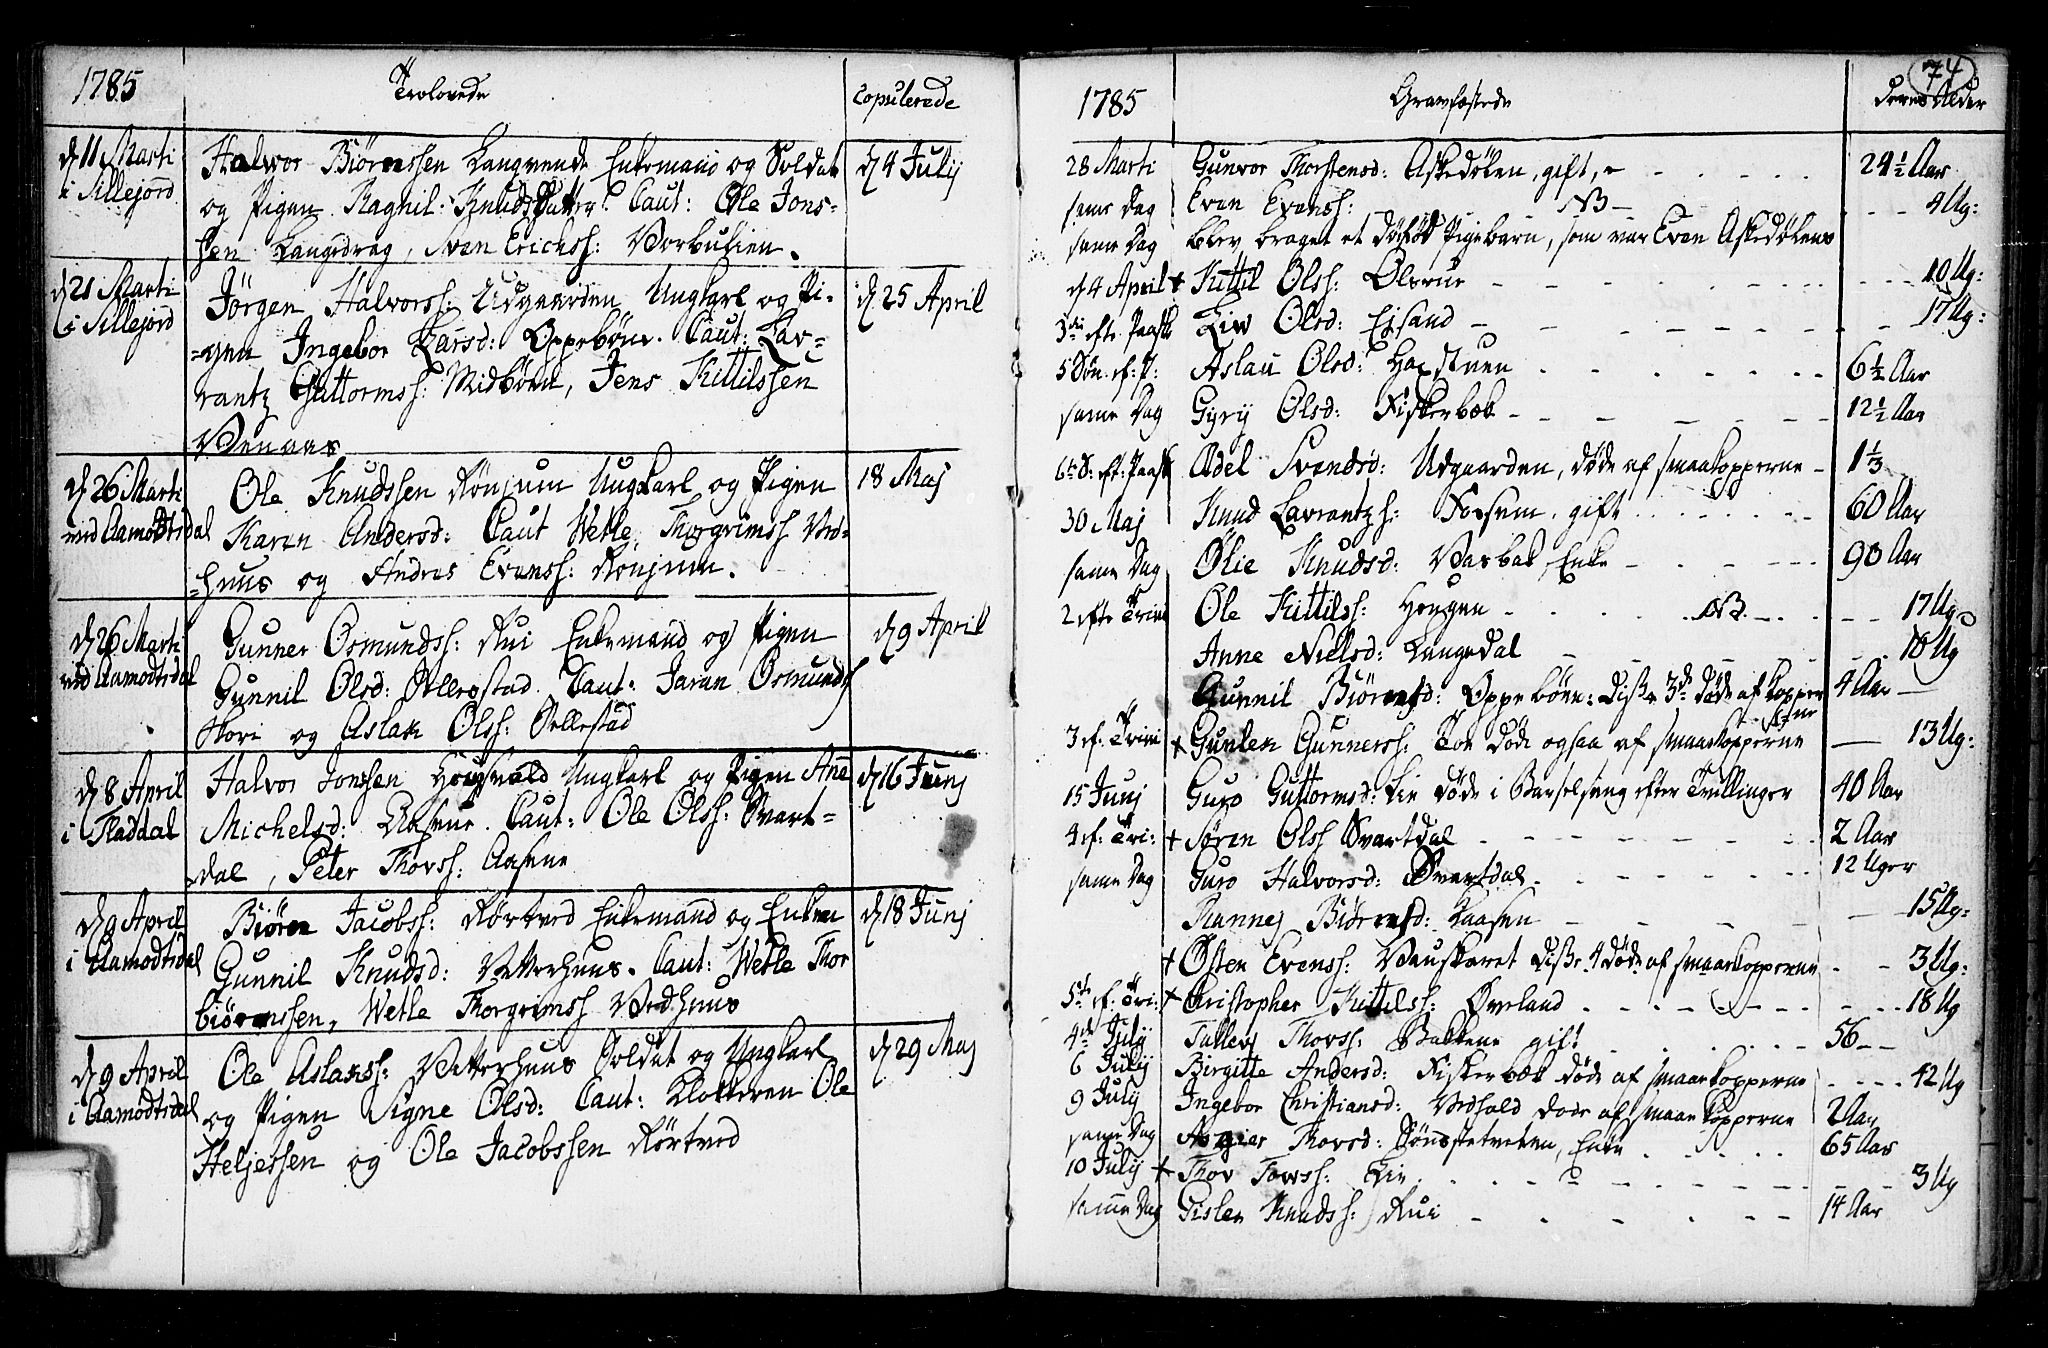 1785
Trolovede
Copulerede
d 11 Marti
i Sillejord
Halvor Biörnssen Langvende Enkemand og Soldat
og Pigen Ragnil Knudsdatter. Caut: Ole Jons-
sen Langedrag, Sven Erichss:
d 4 Julij
d 21 Marti
i Sillejord
Jörgen Halvorss: Udgaarden Ungkarl og Pi-
-gen Ingebor Larsd: Oppeböen. Caut: Lav-
rantz Guttormss: Midböen, Jens Kittilssen
Venaas
d. 25 April
d 26 Marti
ved Aamodtsdal
Ole Knudssen Rönjum Ungkarl og Pigen
Karen Andersd: Caut Wetle Thorgrimss Ved-
-huus og Andres Evenss: Ronjum.
18 Maj
d 26 Marti
ved Aamodtsdal
Gunner Osmundss: Rui Enkemand og Pigen
Gunnil Olsd: Sellestad. Caut: Jaran Osmunds
Kori og Aslak Olss: Sellestad
d 9 April
d 8 April
i Fladdal
Halvor Jonssen Ungkarl og Pigen Añe
Michelsd: Aasene. Caut: Ole Olss: Svart-
dal, Peter Thovss: Aasene
d 16 Junj
d 9 April
i Aamodtsdal
Biörn Jacobss: Rörtved Enkemand og Enken
Gunnil Knudsd: Vetterhuus. Caut: Wetle Thor
biörnssen, Wetle Thorgrimss Vedhuus
d 18 Junj
d 9 April
i Aamodtsdal
Ole Aslakss: Vetterhuus Soldat og Ungkarl
og Pigen Signe Olsd: Caut: Klokkeren Ole
Heljessen og Ole Jacobssen Rörtved
d 29 Maj
74
1785
Gravfæstede
deres Alder
28 Marti Gunvor Thorstensd: Askedölen, gift, 24½ Aar
same Dag Even Evenss: NB 4 Ug:
same Dag blev braget et dödföd Pigebarn, som var Even Askedölens
d 4 April + Kittil Olss: Olsrue 10 Ug:
3die eft. Paask Liv Olsd: Ejsand 17 Ug:
5 Sön. ef: P: Aslau Olsd: Haxstuen 6½ Aar
same Dag Gyrij Olsd: Fiskerbæk 12½ Aar
6te S: eft: Paask Adel Svendsd: Udgaarden, döde af smaakopperne 1⅓
30 Maj Knud Lavrantzs: Forsem, gift 60 Aar
same Dag Ölie Knudsd: Vasbak, Enke 90 Aar
2 efte Trini Ole Kittilss: Hougen NB. 17 Ug
Anne Nielsd: Langedal 18 Ug
Gunnil Biörnsd: Oppeböen: diße 3de döde af kopper
4 Aar
3 ef: Trini + Gunlek Gunnerss: döde ogsaa af smaakopperne 13 Ug:
15 Junj Guro Guttormsd: Lie döde i Barselseng efter Trillinger 40 Aar
4 ef: Tri: + Sören Olss Svartdal 2 Aar
same Dag Guro Halvorsd: Svartdal 12 Uger
Rannej Biörnsd: Aasen 15 Ug:
+ Östen Evenss: Vauskaret diße 4 döde af smaakopperne 3 Ug:
5te ef: Tri: + Christopher Kittilss: Överland 18 Ug
4de Julij Tallev Thovss: Bakkene gift 56
6 Julij Birgitte Andersd: Fiskerbæk döde af smaakopperne 42 Ug
9 Julij Ingebor Christiansd: döde af smaakopperne 2 Aar
same Dag Thovsd: Enke 65 Aar
10 Julij + Thov Tovss: Lie 3 Ug
samme Dag Gisler Knudss: Rui 14 Aar